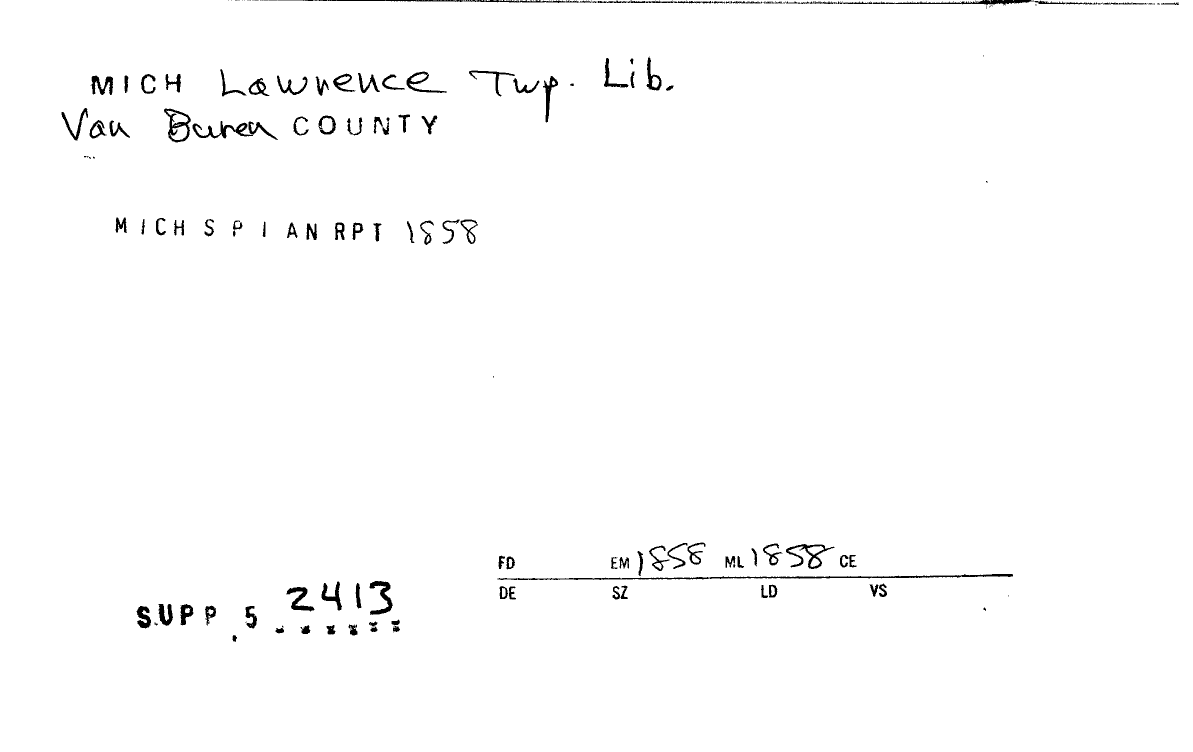 MICH Lawrence Twp. Lib.
Van Buren COUNTY
MICH S P I AN RPT 1858
FD EM 1858 ML 1858 CE
DE SZ LD VS
SUPP 5 2413